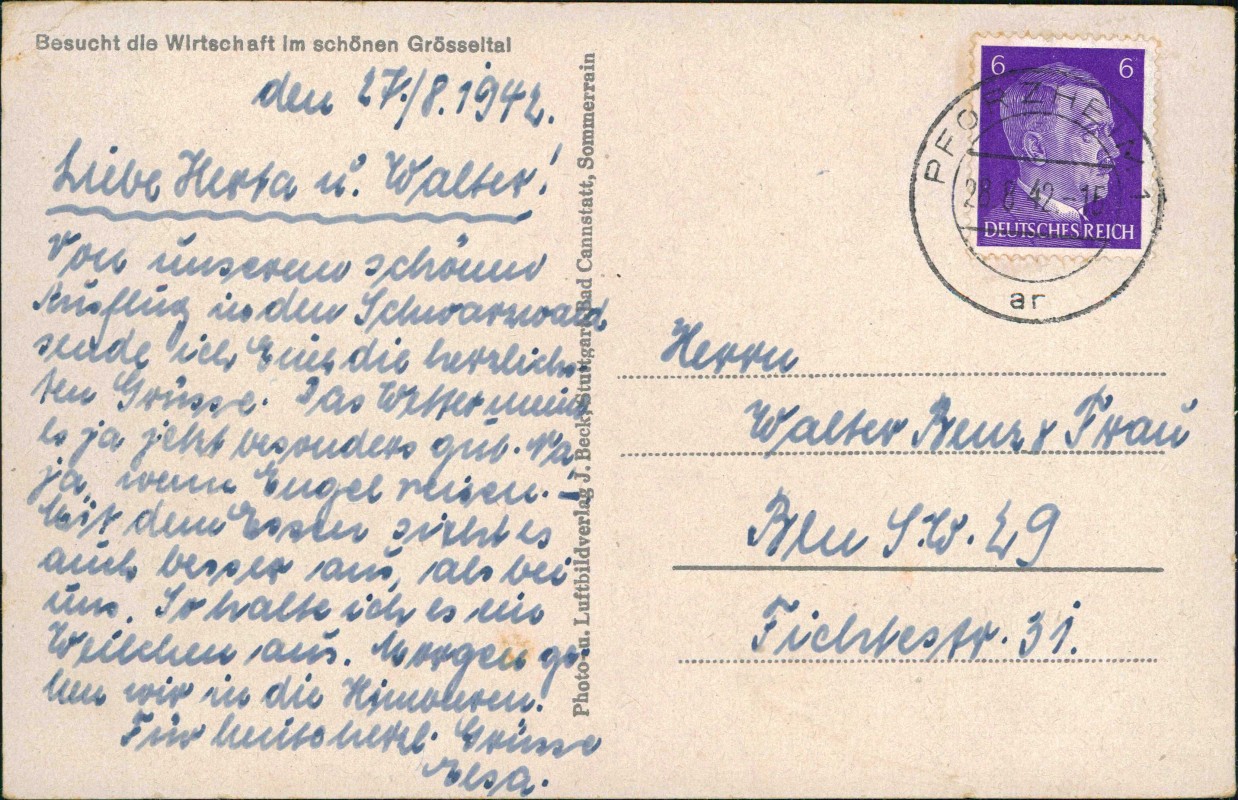 Besucht die Wirtschaft im schönen Grösseltal
den 27./8.1942.
Liebe Herta u. Walter!
Von unserem schönen
Ausflug in den Schwarzwald
sende ich Euch die herzlichs-
ten Grüsse. Das Wetter meint
es ja jetzt besonders gut. Na
ja, wenn Engel reisen. –
Mit dem Essen sieht es
auch besser aus, als bei
uns. So halte ich es ein
Weilchen aus. Morgen ge-
hen wir in die
Für heute herzl. Grüsse
Elsa.
Photo- u. Luftbildverlag J. Beck, Stuttgart-Bad Cannstatt, Sommerrain
6 6
DEUTSCHES REICH
PFORZHEIM
28.8.42-15
ar
Herrn
Walter Benz & Frau
Bln S.W. 29
Fichtestr. 31.